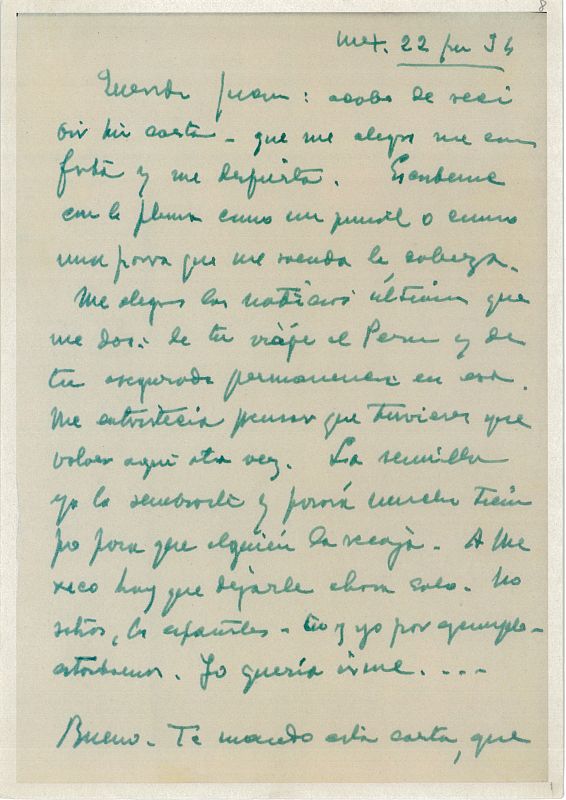 Mex. 22
Querido Juan: acabo de reci
bir tu carta - que me alegra me con
forta y me despierta. Escribeme
con la pluma como un puñal o como
una porra que me sacuda la cabeza.
Me alegran las noticias últimas que
me das: de tu viaje al Peru y de
tu asegurada permanencia en esa.
Me entristecia pensar que tuvieras que
volver aqui otra vez. La semilla
ya la sembraste y pasará mucho tiem
po para que alguién la recoja. A Me
xico hay que dejarle ahora solo. No
sotros, los españoles - tu y yo por ejemplo -
estorbamos. Yo quería irme. . . .
Bueno. Te mando esta carta, que
8